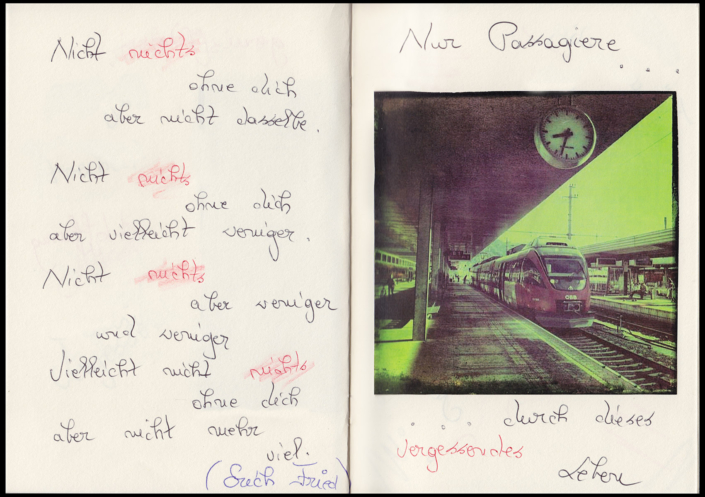 Nicht nichts
ohne dich
aber nicht dasselbe.
Nicht nichts
ohne dich
aber vielleicht weniger.
Nicht nichts
aber weniger
und weniger
Vielleicht nicht nichts
ohne dich
aber nicht mehr
viel.
(Erich Fried)
Nur Passagiere
. . .
ÖBB
. . . durch dieses
vergessendes
Leben